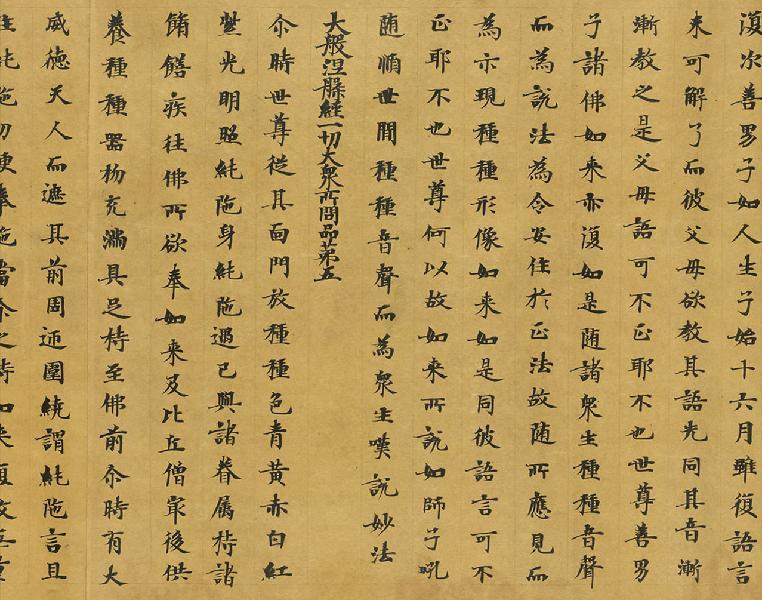 復次善男子如人生子始十六月雖復語言
未可解了而彼父母欲教其語先同其音漸
漸教之是父母語可不正耶不也世尊善男
子諸佛如来亦復如是随諸衆生種種音聲
而為説法為令安住於正法故随所應見而
為示現種種形像如来如是同彼語言可不
正耶不也世尊何以故如来所説如師子吼
随順世間種種音聲而為衆生嘆説妙法
大般涅槃經一切大衆所問品第五
尒時世尊従其面門放種種色青黄赤白紅
光明照純陁身純陁遇已與諸眷属持諸
餚饍疾往佛所欲奉如来及比丘僧冣後供
養種種器物充満具足持至佛前尒時有大
威徳天人而遮其前周迊圍繞謂純陁言且